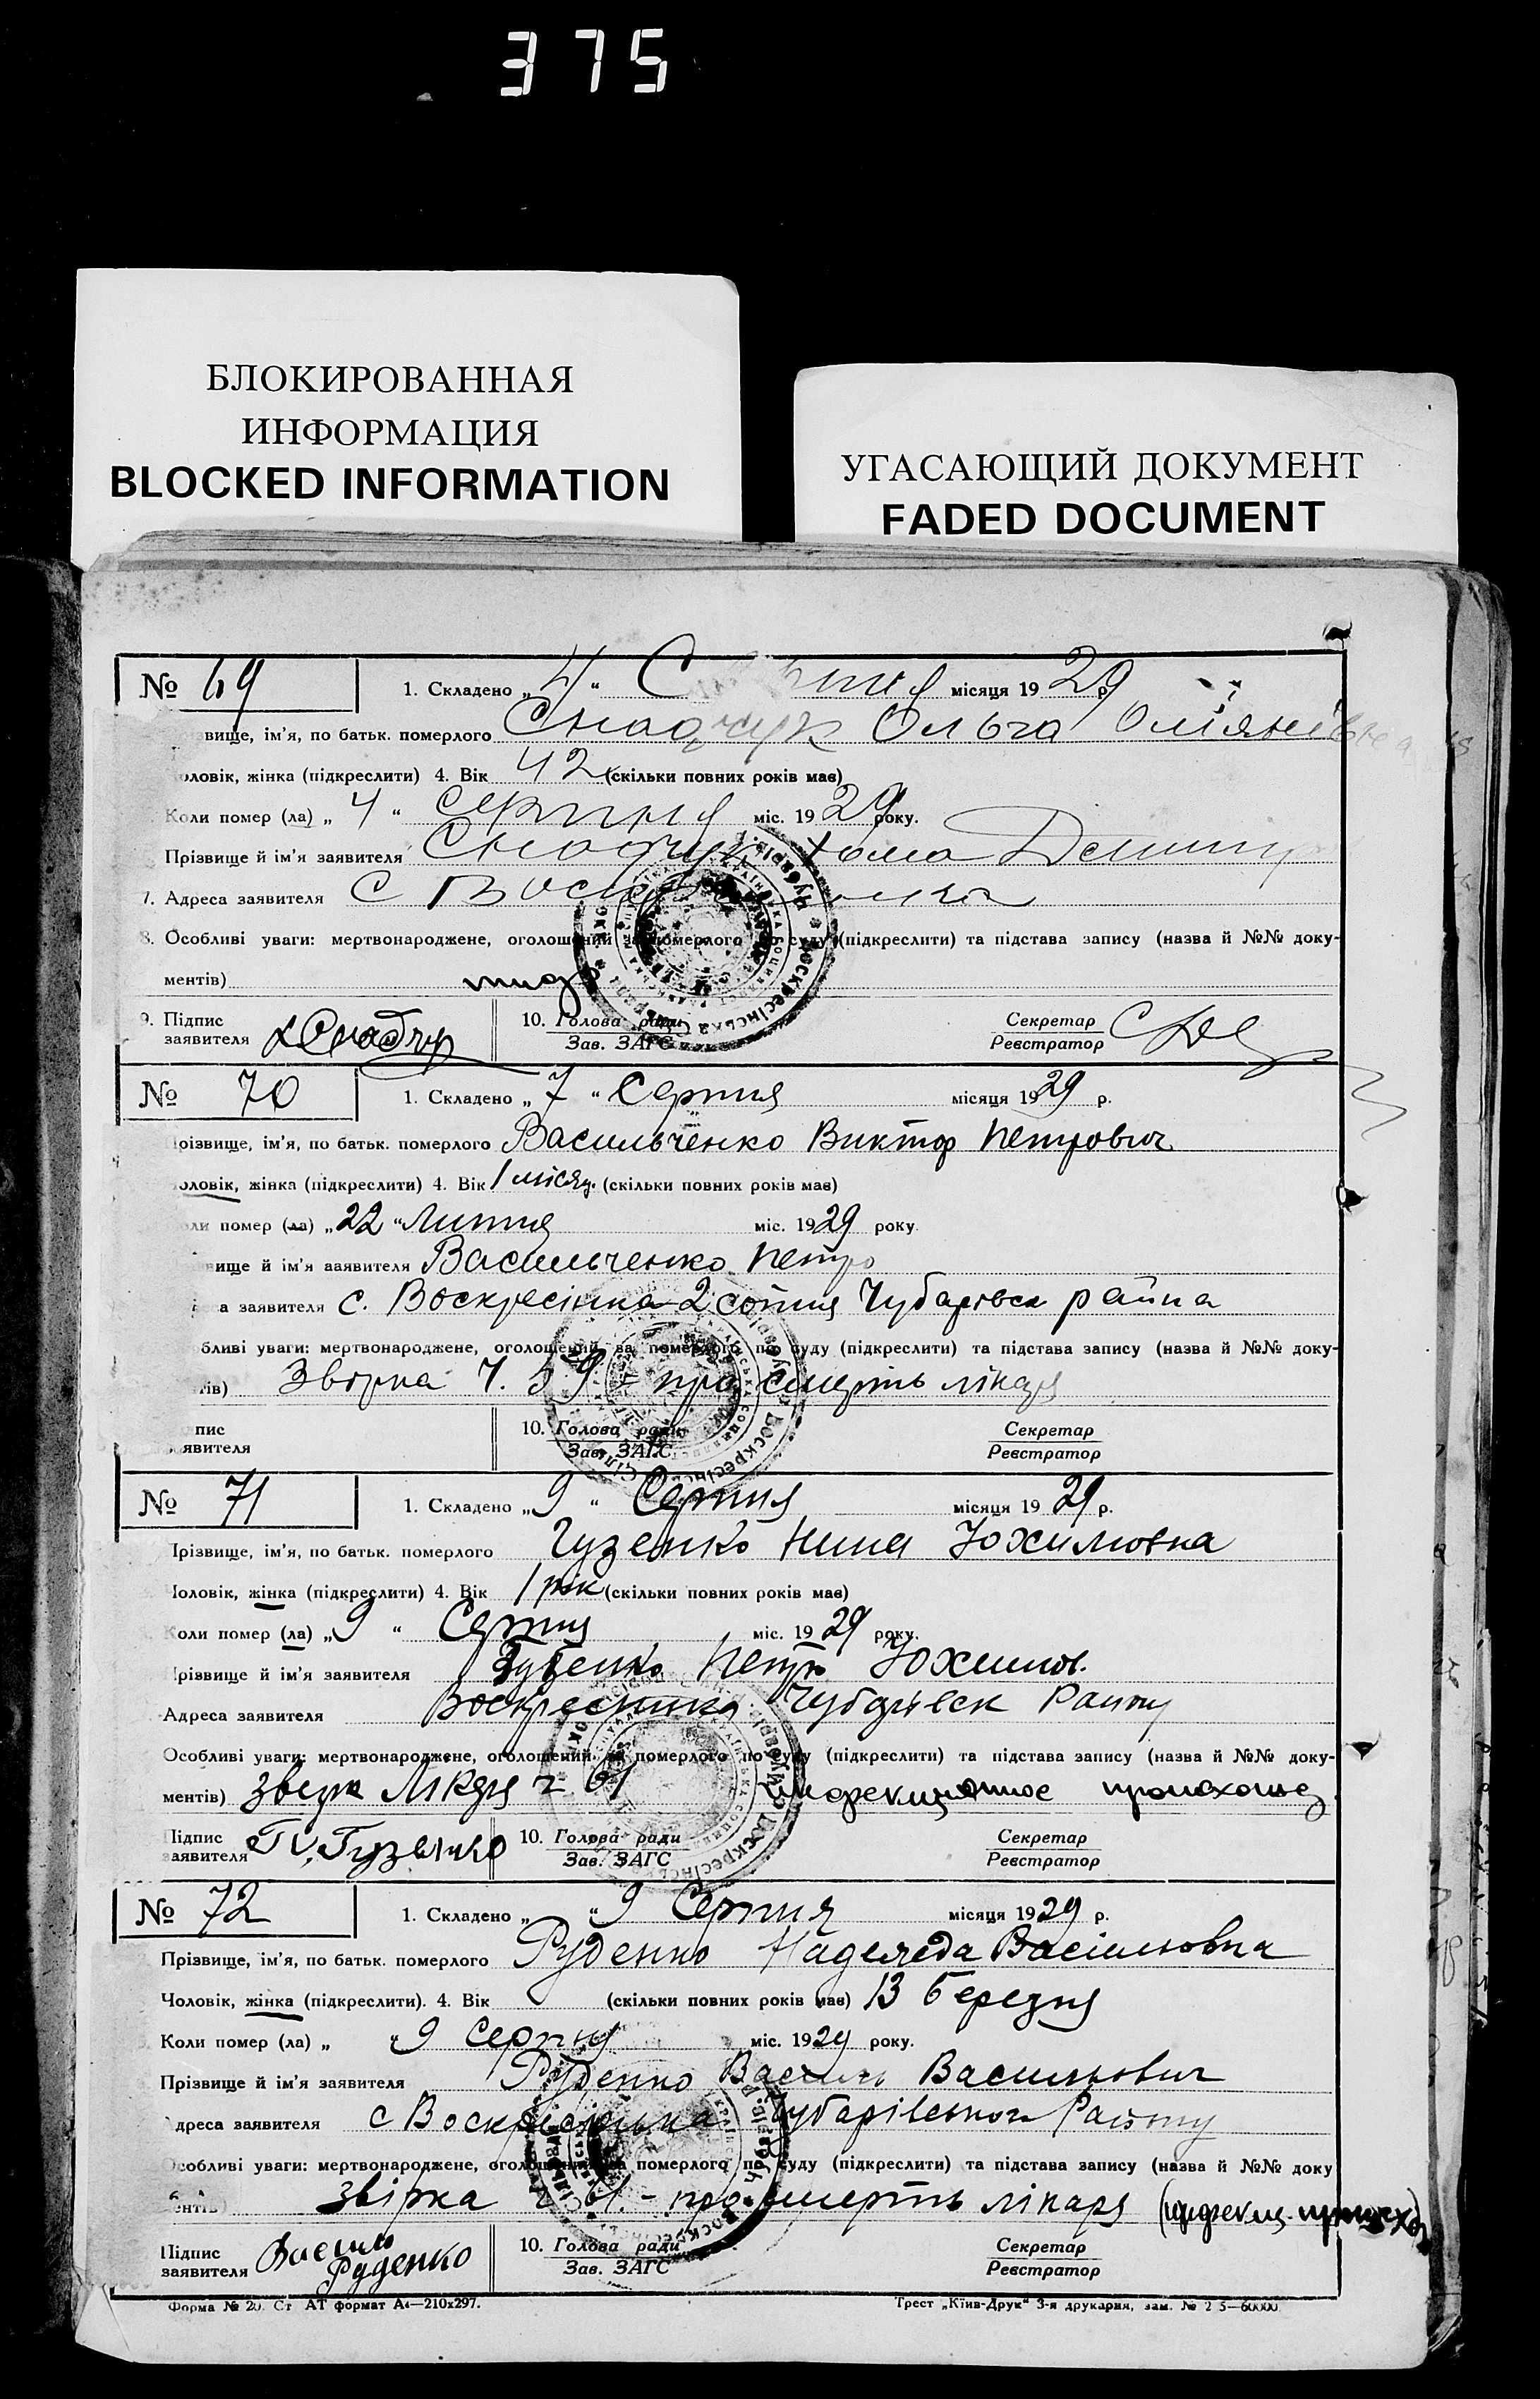 375
БЛОКИРОВАННАЯ
ИНФОРМАЦИЯ
BLOCKED INFORMATION
УГАСАЮЩИЙ ДОКУМЕНТ
FADED DOCUMENT
№ 69 1. Складено „ 4 “ місяця 19 29 р.
вище, ім'я, по батьк. померлого Ольга
оловік, жінка (підкреслити) 4. Вік 42 (скільки повних років має)
Коли помер (ла) „ 4 “ серпня міс. 19 29 року.
Прізвище й ім'я заявителя Хома
7. Адреса заявителя С
8. Особливі уваги: мертвонароджене, оголошений за померлого по суду (підкреслити) та підстава запису (назва й №№ доку-
ментів)
9. Підпис заявителя 10. Голова ради Зав. ЗАГС Секретар Реєстратор
№ 70 1. Складено „ 7 “ Серпня місяця 19 29 р.
різвище, ім'я, по батьк. померлого Васильченко Виктор Петрович
оловік, жінка (підкреслити) 4. Вік 1 місяц. (скільки повних років має)
ли помер (ла) „ 22 “ Липня міс. 19 29 року
вище й ім'я заявителя Васильченко Петро
а заявителя с. Воскресінка 2 сотня Чубарівск района
бливі уваги: мертвонароджене, оголошений за померлого по суду (підкреслити) та підстава запису (назва й №№ доку-
тів) Звірка Ч. 59 - про смерть лікаря
пис аявителя 10. Голова ради Зав. ЗАГС Секретар Реєстратор
№ 71 1. Складено „ 9 “ Серпня місяця 19 29 р.
Прізвище, ім'я, по батьк. померлого Гузенко Нина Юхимовна
Чоловік, жінка (підкреслити) 4. Вік 1 рік (скільки повних років має)
Коли помер (ла) „ 9 “ Серпня міс. 19 29 року.
Прізвище й ім'я заявителя Гузенко Петро Юхимов.
Адреса заявителя Воскресинка Чубарівск Району
Особливі уваги: мертвонароджене, оголошений за померлого по суду (підкреслити) та підстава запису (назва й №№ доку-
ментів) звірка Лікаря ч 61
Підпис заявителя Гузенко 10. Голова ради Зав. ЗАГС Секретар Реєстратор
№ 72 1. Складено „ “ 9 Серпня місяця 19 29 р.
Прізвище, ім'я, по батьк. померлого Руденко Надежда Васильовна
Чоловік, жінка (підкреслити). 4. Вік (скільки повних років має) 13 березня
Коли помер (ла) „ “ 9 серпня міс. 19 29 року.
Прізвище й ім'я заявителя Руденко Василь Васильович
дреса заявителя с Воскресінка Чубарівського Району
Особливі уваги: мертвонароджене, оголошений за померлого по суду (підкреслити) та підстава запису (назва й №№ доку
ентів) звірка 61. - про смерть лікаря
Підпис заявителя Василь Руденко 10. Голова ради Зав. ЗАГС Секретар Реєстратор
Форма № 20. Ст АТ формат А4—210x297. Трест „Київ-Друк“ 3-я друкарня, зам. №